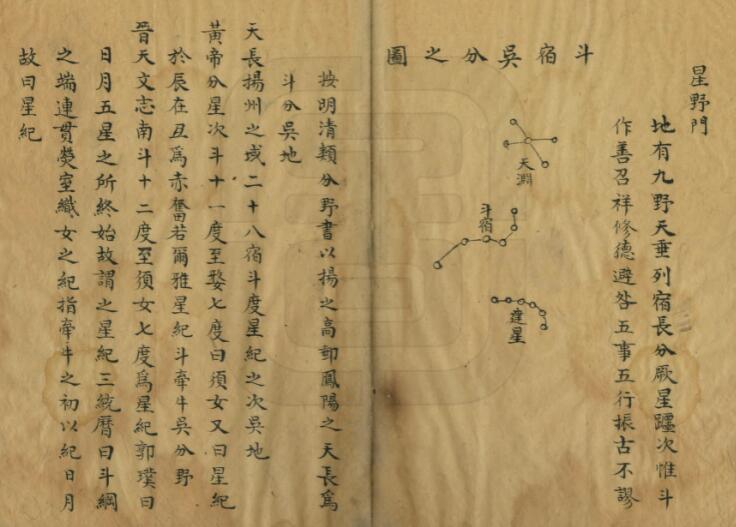 星野門
地有九野天垂列宿長分厥星躔次惟斗
作善召祥修德避咎五事五行振古不謬
斗宿吳分之圖
天淵
斗宿
建星
按明清類分野書以揚之高郵鳳陽之天長爲
斗分吳地
天長揚州之域二十八宿斗度星紀之次吳地
黃帝分星次斗十一度至婺七度曰須女又曰星紀
於辰在丑爲赤奮若爾雅星紀斗牽牛吳分野
晉天文志南斗十二度至須女七度爲星紀郭璞曰
日月五星之所終始故謂之星紀三統曆曰斗綱
之端連貫熒室織女之紀指牽牛之初以紀日月
故曰星紀